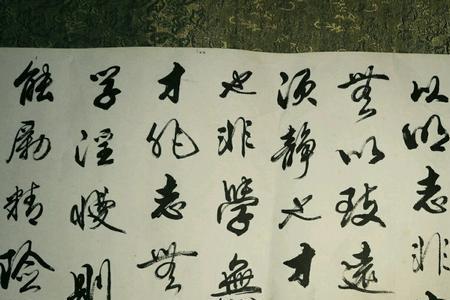 以明志非
無以致遠
須靜也才
也非學無
才非志無
学淫慢則
能勵精險